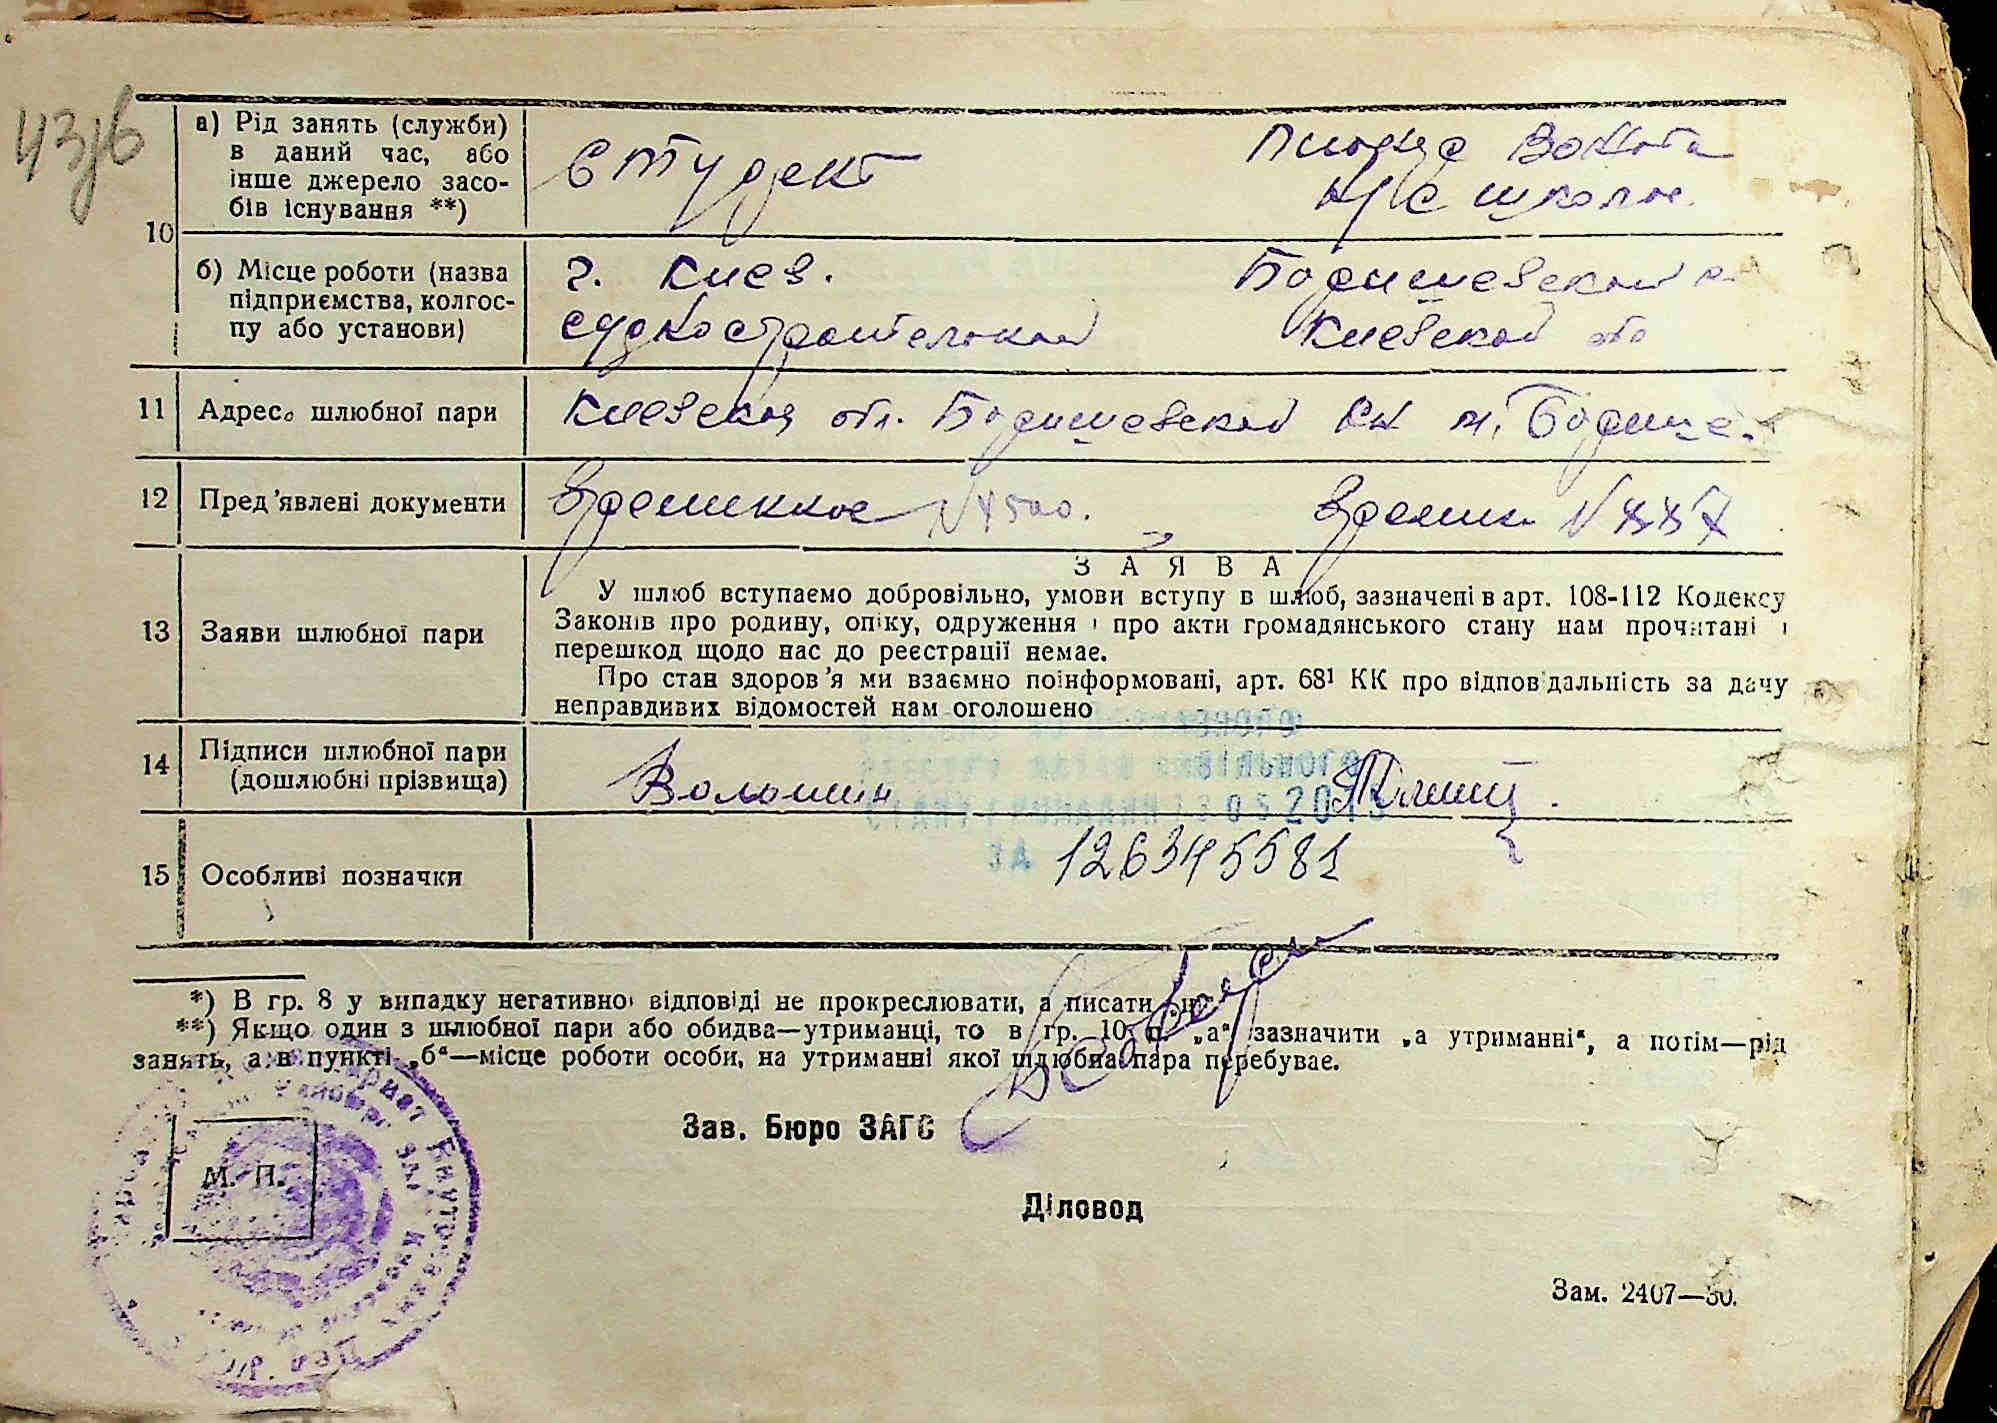 а) Рід занять (служби)
в даний час, або
інше джерело засо-
бів існування **)
Студент
школе
10
б) Місце роботи (назва
підприємства, колгос-
пу або установи)
г. Киев.
Киевской
11 Адреса шлюбної пари Киевская обл. м.
12 Пред'явлені документи Временное N 4500. Времен N
13 Заяви шлюбної пари
ЗАЯВА
У шлюб вступаємо добровільно, умови вступу в шлюб, зазначені в арт. 108-112 Кодексу
Законів про родину, опіку, одруження і про акти громадянського стану нам прочитані і
перешкод щодо нас до реєстрації немає.
Про стан здоров'я ми взаємно поінформовані, арт. 68¹ КК про відповідальність за дачу
неправдивих відомостей нам оголошено
14 Підписи шлюбної пари
(дошлюбні прізвища)
Волошин
2013
15 Особливі позначки
ЗА 126345581
*) В гр. 8 у випадку негативної відповіді не прокреслювати, а писати
**) Якщо один з шлюбної пари або обидва—утриманці, то в гр. 10 п. „а" зазначити „а утриманні", а потім—рід
занять, а в пункті „б"—місце роботи особи, на утриманні якої шлюбна пара перебуває.
М. П.
Зав. Бюро ЗАГС
Діловод
Зам. 2407—30.